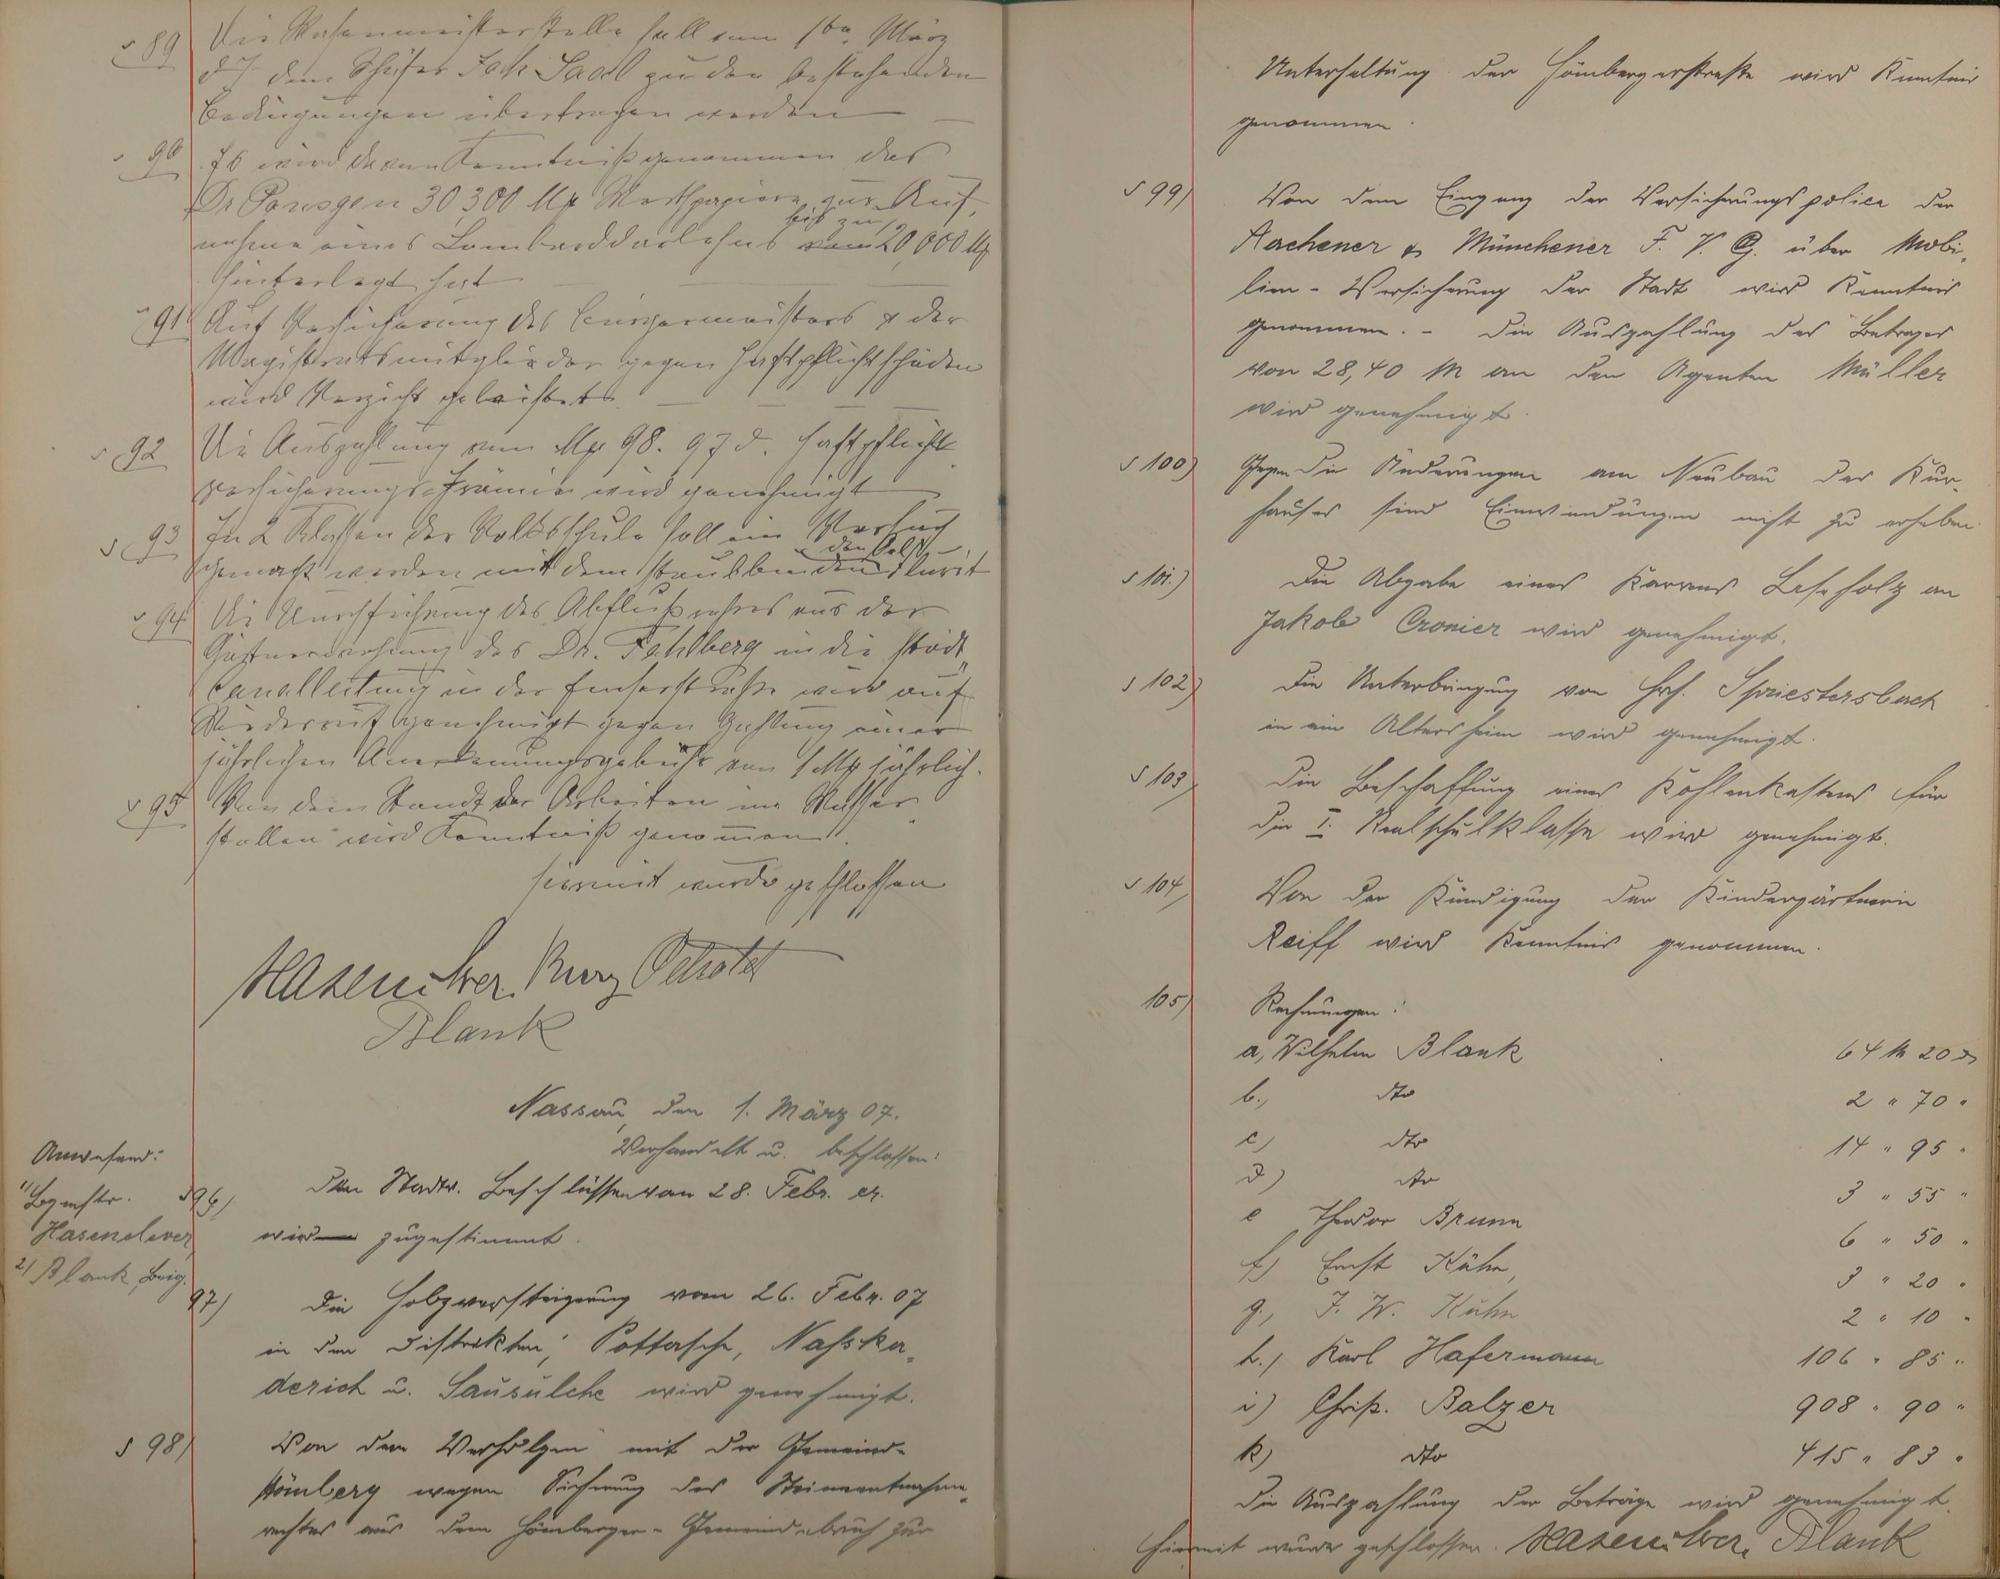 § 89 Die Wasenmeisterstelle soll vom 1ten März
d. J. dem Schäfer Joh Saal zu den bestehenden
Bedingungen übertragen werden
§ 90 Es wird davon Kenntniß genommen das
Dr Poensgen 30,300 Mk Werthpapiere zur Auf,
nahme eines Lombarddarlehns bis zu 20,000 Mk
hinterlegt hat
§ 91 Auf Versicherung des Bürgermeisters & der
Magistratsmitglieder gegen Haftpflichtschäden
wird Verzicht geleistet
§ 92 Die Auszahlung von Mk 98. 97 d. Haftpflicht
versicherungs-Prämie wird genehmigt
§ 93 In 2 Klassen der Volksschule soll ein Versuch
gemacht werden mit dem staubbindenden
§ 94 Die Durchführung des Abflußrohres aus der
des Dr. Fahlberg in die städt.
Canalleitung in der Emserstraße wird auf
Widerruf genehmigt gegen Zahlung einer
jährlichen Anerkennungsgebühr von 1 Mk jährlich.
§ 95 Von dem Stande der Arbeiten im Wasser„
stollen wird Kenntniß genommen.
Hiermit wurde geschlossen
Hasenclever Kurz
Blank
Nassau, den 1. März 07.
Verhandelt u. beschlossen:
Anwesend:
1) Bgmstr.
Hasenclever
2) Blank, Beig.
§ 96) Den Stadtv. Beschlüssen von 28. Febr. cr.
wird zugestimmt.
97) Die Holzversteigerung vom 26. Febr. 07
in den Distrikten, Pottasche, Nasska„
derich u. Sausulche wird genehmigt.
§ 98) Von dem Verfolgen mit der Gemeinde
Hömberg wegen Sicherung des Steinentnahme„
rechtes aus dem Hömberger-Gemeindebruch zur
Unterhaltung der Hömbergerstraße wird Kenntnis
genommen.
§ 99) Von dem Eingang der Versicherungspolice der
Aachener & Münchener F. V. G. über Mobi„
lien-Versicherung der Stadt wird Kenntnis
genommen. - Die Auszahlung des Betrages
von 28,40 M an den Agenten Müller
wird genehmigt.
§ 100) Gegen die Änderungen am Neubau des Kur„
hauses sind Einwendungen nicht zu erheben.
§ 101.) Die Abgabe eines Karrens Leseholz an
Jakob Cronier wird genehmigt.
§ 102) Die Unterbringung von Hch. Spriestersbach
in ein Altersheim wird genehmigt.
§ 103) Die Beschaffung eines Kohlenkastens für
die I. Realschulklasse wird genehmigt.
§ 104) Von der Kündigung der Kindergärtnerin
Reiff wird Kenntnis genommen.
105) Rechnungen:
a, Wilhelm Blank 64 M 20 ₰
b., dto 2 " 70 "
c) dto 14 " 95 "
d) dto 3 " 55 "
e Theodor Brunn 6 " 50 "
f) Ernst Kühn, 3 " 20 "
g., F. W. Kühn 2 " 10 "
h.) Karl Hafermann 106 " 85 "
i) Chrst. Balzer 908 " 90 "
k) dto 415 " 83 "
Die Auszahlung der Beträge wird genehmigt.
Hiermit wurde geschlossen. Hasenclever. Blank